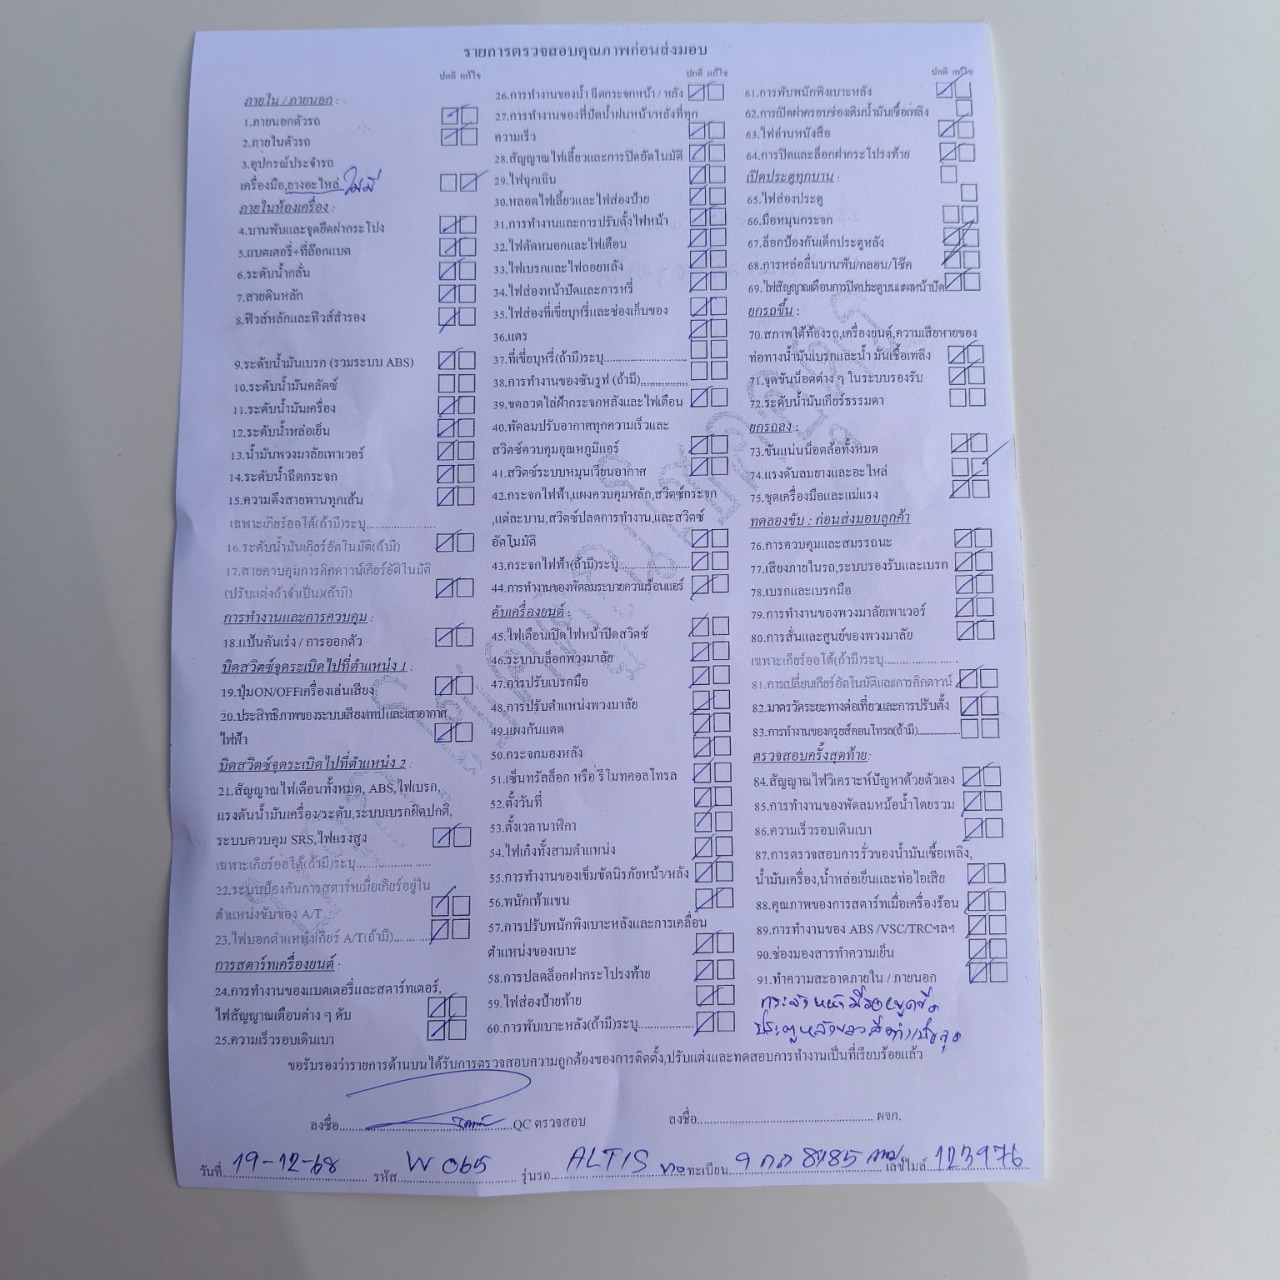 รายการตรวจสอบคุณภาพก่อนส่งมอบ
ปกติ แก้ไข
ภายใน / ภายนอก :
1.ภายนอกตัวรถ
2.ภายในตัวรถ
3.อุปกรณ์ประจำรถ
เครื่องมือ,ยางอะไหล่ ไม่มี
ภายในห้องเครื่อง :
4.บานพับและจุดยึดฝากระโปง
5.แบตเตอรี่+ที่ล๊อกแบต
6.ระดับน้ำกลั่น
7.สายดินหลัก
8.ฟิวส์หลักและฟิวส์สำรอง
9.ระดับน้ำมันเบรก (รวมระบบ ABS)
10.ระดับน้ำมันคลัตซ์
11.ระดับน้ำมันเครื่อง
12.ระดับน้ำหล่อเย็น
13.น้ำมันพวงมาลัยเพาเวอร์
14.ระดับน้ำฉีดกระจก
15.ความตึงสายพานทุกเส้น
เฉพาะเกียร์ออโต้(ถ้ามี)ระบุ....................
16.ระดับน้ำมันเกียร์อัตโนมัติ(ถ้ามี)
17.สายควบคุมการคิกดาวน์เกียร์อัติโนมัติ
(ปรับแต่งถ้าจำเป็น)(ถ้ามี)
การทำงานและการควบคุม :
18.แป้นคันเร่ง / การออกตัว
บิดสวิตซ์จุดระเบิดไปที่ตำแหน่ง 1 :
19.ปุ่มON/OFFเครื่องเล่นเสียง
20.ประสิทธิภาพของระบบเสียงเทปและเสาอากาศ
ไฟฟ้า
บิดสวิตซ์จุดระเบิดไปที่ตำแหน่ง 2 :
21.สัญญาณไฟเตือนทั้งหมด, ABS,ไฟเบรก,
แรงดันน้ำมันเครื่อง/ระดับ,ระบบเบรกผิดปกติ,
ระบบควบคุม SRS,ไฟแรงสูง
เฉพาะเกียร์ออโต้(ถ้ามี)ระบุ....................
22.ระบบป้องกันการสตาร์ทเมื่อเกียร์อยู่ใน
ตำแหน่งขับของ A/T
23.ไฟบอกตำแหน่งเกียร์ A/T(ถ้ามี).........
การสตาร์ทเครื่องยนต์ :
24.การทำงานของแบตเตอรี่และสตาร์ทเตอร์,
ไฟสัญญาณเตือนต่าง ๆ ดับ
25.ความเร็วรอบเดินเบา
ปกติ แก้ไข
26.การทำงานของน้ำ ฉีดกระจกหน้า / หลัง
27.การทำงานของที่ปัดน้ำฝนหน้า/หลังที่ทุก
ความเร็ว
28.สัญญาณไฟเลี้ยวและการปิดอัตโนมัติ
29.ไฟฉุกเฉิน
30.หลอดไฟเลี้ยวและไฟส่องป้าย
31.การทำงานและการปรับตั้งไฟหน้า
32.ไฟตัดหมอกและไฟเตือน
33.ไฟเบรกและไฟถอยหลัง
34.ไฟส่องหน้าปัดและการหรี่
35.ไฟส่องที่เขี่ยบุหรี่และช่องเก็บของ
36.แตร
37.ที่เขี่ยบุหรี่(ถ้ามี)ระบุ........................
38.การทำงานของซันรูฟ (ถ้ามี)................
39.ขดลวดไล่ฝ้ากระจกหลังและไฟเตือน
40.พัดลมปรับอากาศทุกความเร็วและ
สวิตซ์ควบคุมอุณหภูมิแอร์
41.สวิตซ์ระบบหมุนเวียนอากาศ
42.กระจกไฟฟ้า,แผงควบคุมหลัก,สวิตซ์กระจก
,แต่ละบาน,สวิตซ์ปลดการทำงาน,และสวิตซ์
อัตโนมัติ
43.กระจกไฟฟ้า(ถ้ามี)ระบุ....................
44.การทำงานของพัดลมระบายความร้อนแอร์
ดับเครื่องยนต์ :
45.ไฟเตือนเปิดไฟหน้าปิดสวิตซ์
46.ระบบบล็อกพวงมาลัย
47.การปรับเบรกมือ
48.การปรับตำแหน่งพวงมาลัย
49.แผงกันแดด
50.กระจกมองหลัง
51.เซ็นทรัลล็อก หรือ รีโมทคอลโทรล
52.ตั้งวันที่
53.ตั้งเวลานาฬิกา
54.ไฟเก๋งทั้งสามตำแหน่ง
55.การทำงานของเข็มขัดนิรภัยหน้า/หลัง
56.พนักเท้าแขน
57.การปรับพนักพิงเบาะหลังและการเคลื่อน
ตำแหน่งของเบาะ
58.การปลดล็อกฝากระโปรงท้าย
59.ไฟส่องป้ายท้าย
60.การพับเบาะหลัง(ถ้ามี)ระบุ....................
ปกติ แก้ไข
61.การพับพนักพิงเบาะหลัง
62.การเปิดฝาครอบช่องเติมน้ำมันเชื้อเพลิง
63.ไฟอ่านหนังสือ
64.การปิดและล็อกฝากระโปรงท้าย
เปิดประตูทุกบาน :
65.ไฟส่องประตู
66.มือหมุนกระจก
67.ล็อกป้องกันเด็กประตูหลัง
68.การหล่อลื่นบานพับ/กลอน/โช๊ค
69.ไฟสัญญาณเตือนการเปิดประตูบนแผงหน้าปัด
ยกรถขึ้น :
70.สภาพใต้ท้องรถ,เครื่องยนต์,ความเสียหายของ
ท่อทางน้ำมันเบรกและน้ำ มันเชื้อเพลิง
71.จุดขันน็อตต่าง ๆ ในระบบรองรับ
72.ระดับน้ำมันเกียร์ธรรมดา
ยกรถลง :
73.ขันแน่นน็อตล้อทั้งหมด
74.แรงดันลมยางและอะไหล่
75.ชุดเครื่องมือและแม่แรง
ทดลองขับ : ก่อนส่งมอบลูกค้า
76.การควบคุมและสมรรถนะ
77.เสียงภายในรถ,ระบบรองรับและเบรก
78.เบรกและเบรกมือ
79.การทำงานของพวงมาลัยเพาเวอร์
80.การสั่นและศูนย์ของพวงมาลัย
เฉพาะเกียร์ออโต้(ถ้ามี)ระบุ....................
81.การเปลี่ยนเกียร์อัตโนมัติและการคิกดาวน์
82.มาตรวัดระยะทางต่อเที่ยวและการปรับตั้ง
83.การทำงานของครูซส์คอนโทรล(ถ้ามี)..........
ตรวจสอบครั้งสุดท้าย:
84.สัญญาณไฟวิเคราะห์ปัญหาด้วยตัวเอง
85.การทำงานของพัดลมหม้อน้ำโดยรวม
86.ความเร็วรอบเดินเบา
87.การตรวจสอบการรั่วของน้ำมันเชื้อเพลิง,
น้ำมันเครื่อง,น้ำหล่อเย็นและท่อไอเสีย
88.คุณภาพของการสตาร์ทเมื่อเครื่องร้อน
89.การทำงานของ ABS /VSC/TRCฯลฯ
90.ช่องมองสารทำความเย็น
91.ทำความสะอาดภายใน / ภายนอก
กระจกหน้ามีรอยขูดขีด
ประตูหลังขวา
ขอรับรองว่ารายการด้านบนได้รับการตรวจสอบความถูกต้องของการติดตั้ง,ปรับแต่งและทดสอบการทำงานเป็นที่เรียบร้อยแล้ว
ลงชื่อ..............................QC ตรวจสอบ
ลงชื่อ..............................ผจก.
วันที่ 19-12-68 รหัส W 065 รุ่นรถ ALTIS ทะเบียน 9 กถ 8485 กทม เลขไมล์ 123976